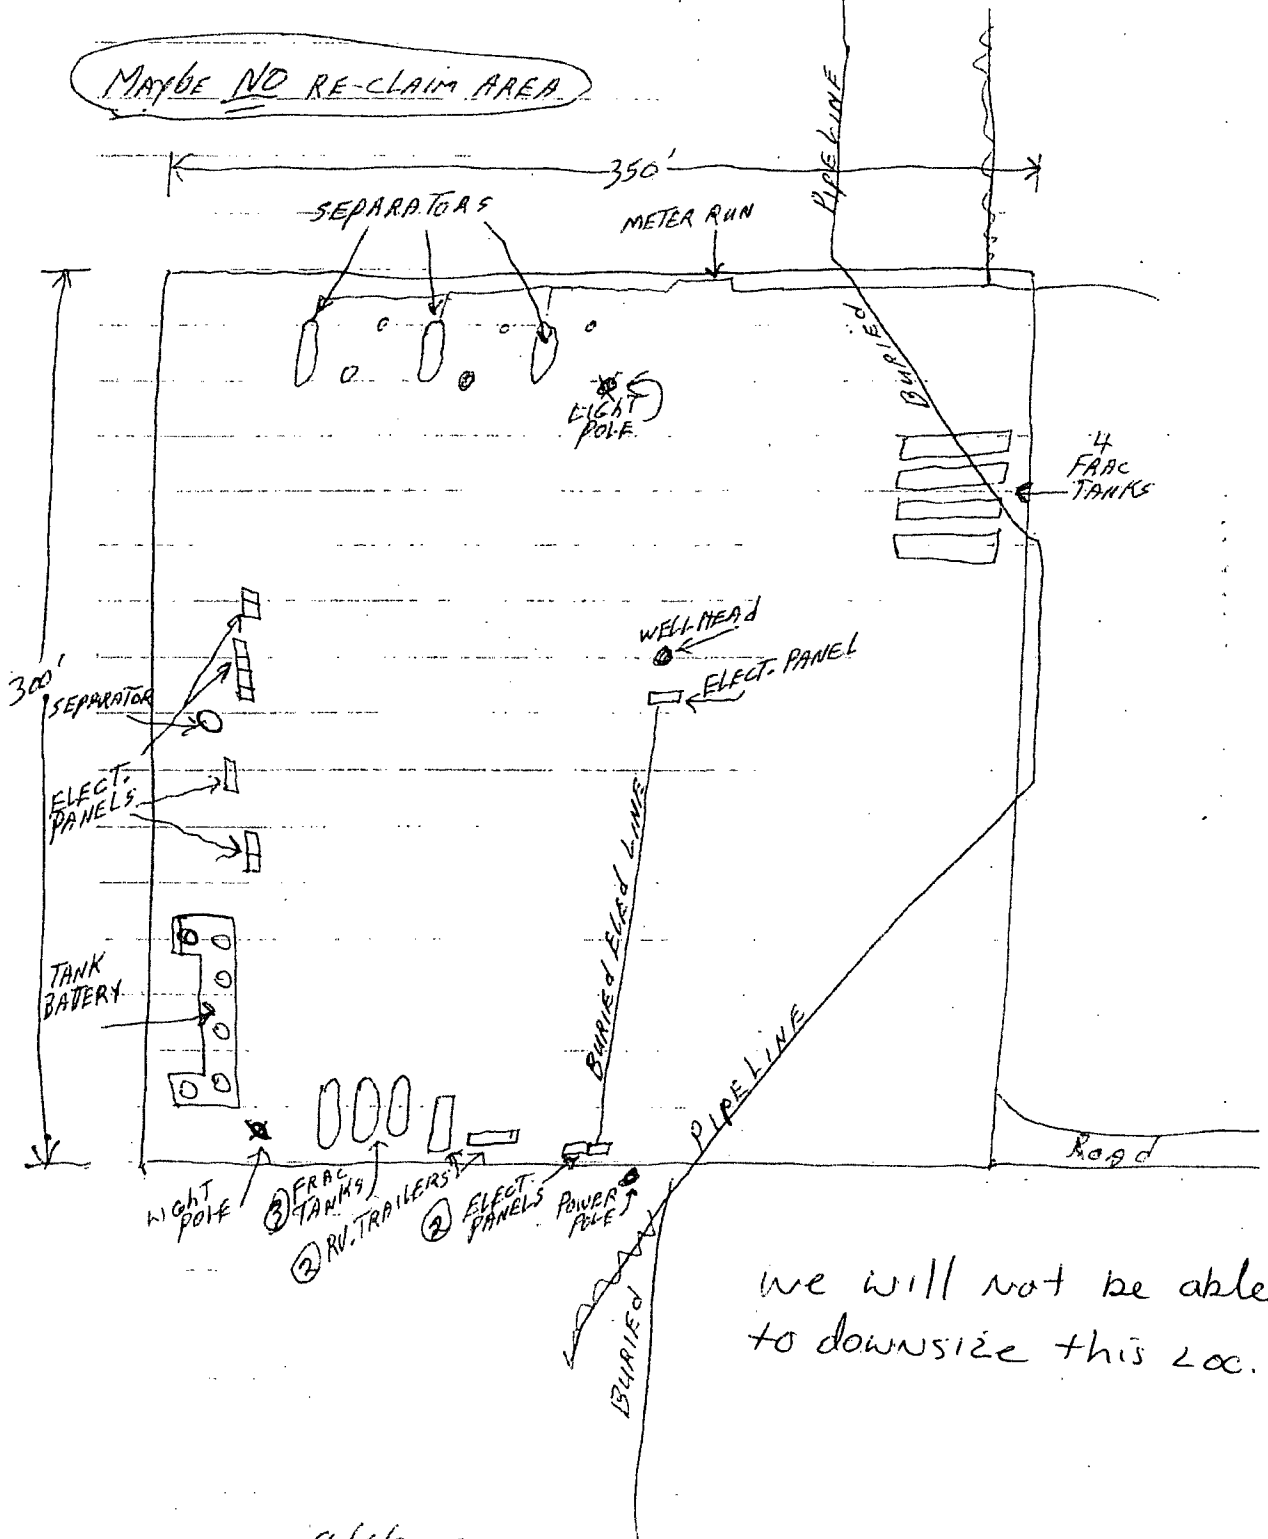 MAYBE NO RE-CLAIM AREA
350'
PIPELINE
SEPARATORS
METER RUN
BURIED
LIGHT
POLE
4
FRAC
TANKS
WELLHEAD
ELECT. PANEL
300'
SEPARATOR
ELECT.
PANELS
BURIED ELED LINE
TANK
BATTERY
PIPELINE
ROAD
LIGHT
POLE
3 FRAC
TANKS
2 RV. TRAILERS
2 ELECT.
PANELS
POWER
POLE
BURIED
we will not be able
to downsize this Loc.